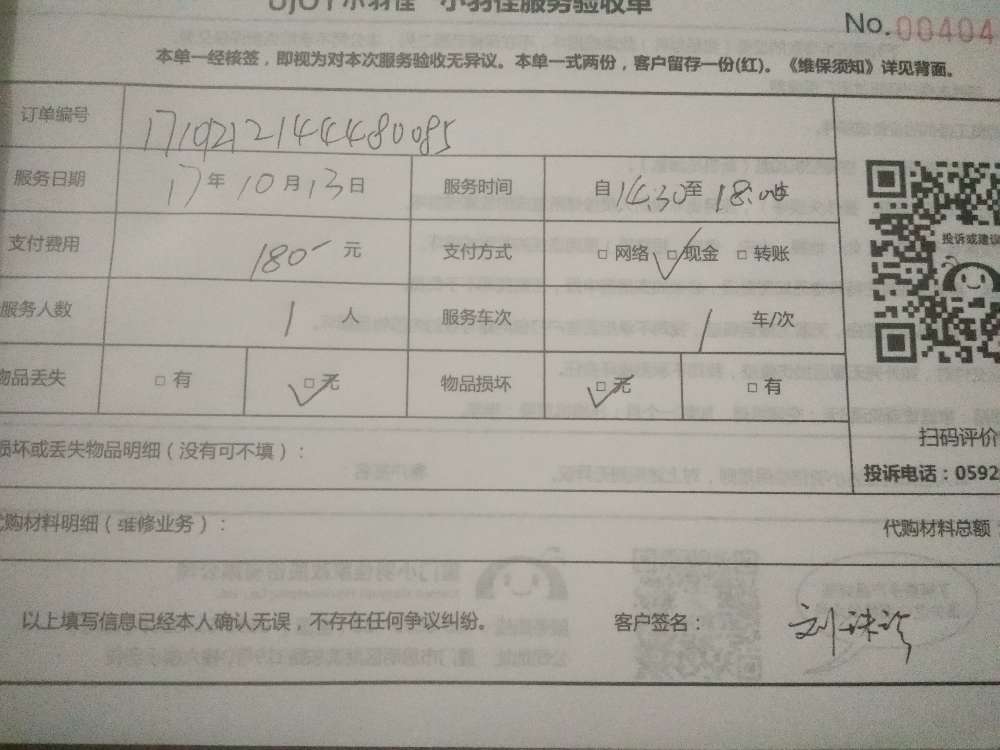 UJOY小羽佳 小羽佳服务验收单
No.00404
本单一经核签，即视为对本次服务验收无异议。本单一式两份，客户留存一份(红)。《维保须知》详见背面。
订单编号 1710212144480085
服务日期 17年10月13日 服务时间 自14:30至18:00时
支付费用 180 元 支付方式 □网络 □现金 □转账
投诉或建议
服务人数 1 人 服务车次 1 车/次
物品丢失 □有 □无 物品损坏 □无 □有
扫码评价
损坏或丢失物品明细（没有可不填）：
投诉电话：0592
代购材料明细（维修业务）： 代购材料总额：
以上填写信息已经本人确认无误，不存在任何争议纠纷。 客户签名：刘